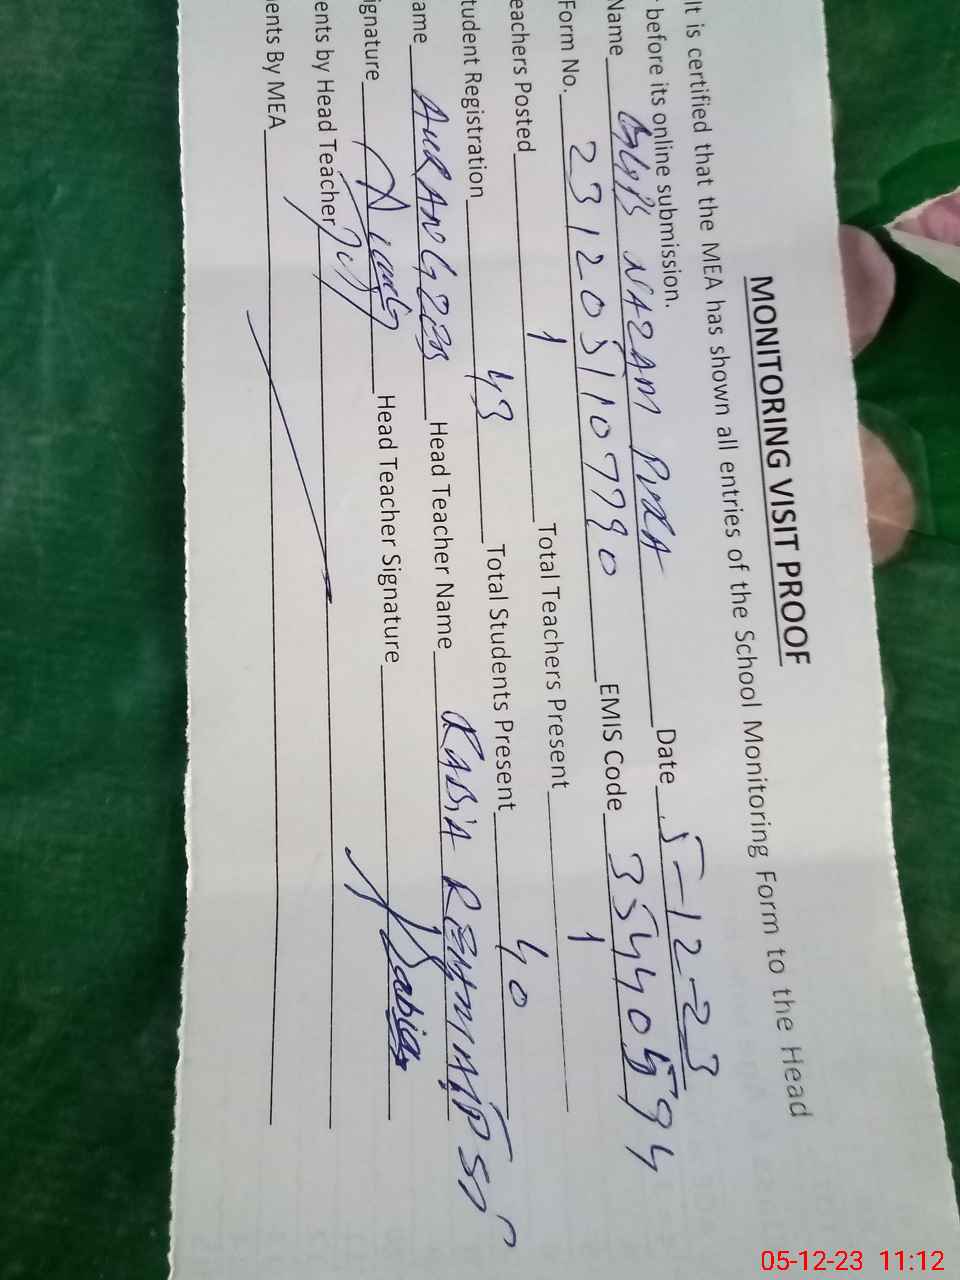 MONITORING VISIT PROOF
It is certified that the MEA has shown all entries of the School Monitoring Form to the Head
before its online submission.
Name NAZAM PURA Date 5-12-23
Form No. 231205107790 EMIS Code 35440594
eachers Posted 1 Total Teachers Present 1
tudent Registration 43 Total Students Present 40
ame AURANGZEB Head Teacher Name RABIA
ignature Head Teacher Signature Rabia
ents by Head Teacher
ents By MEA
05-12-23 11:12